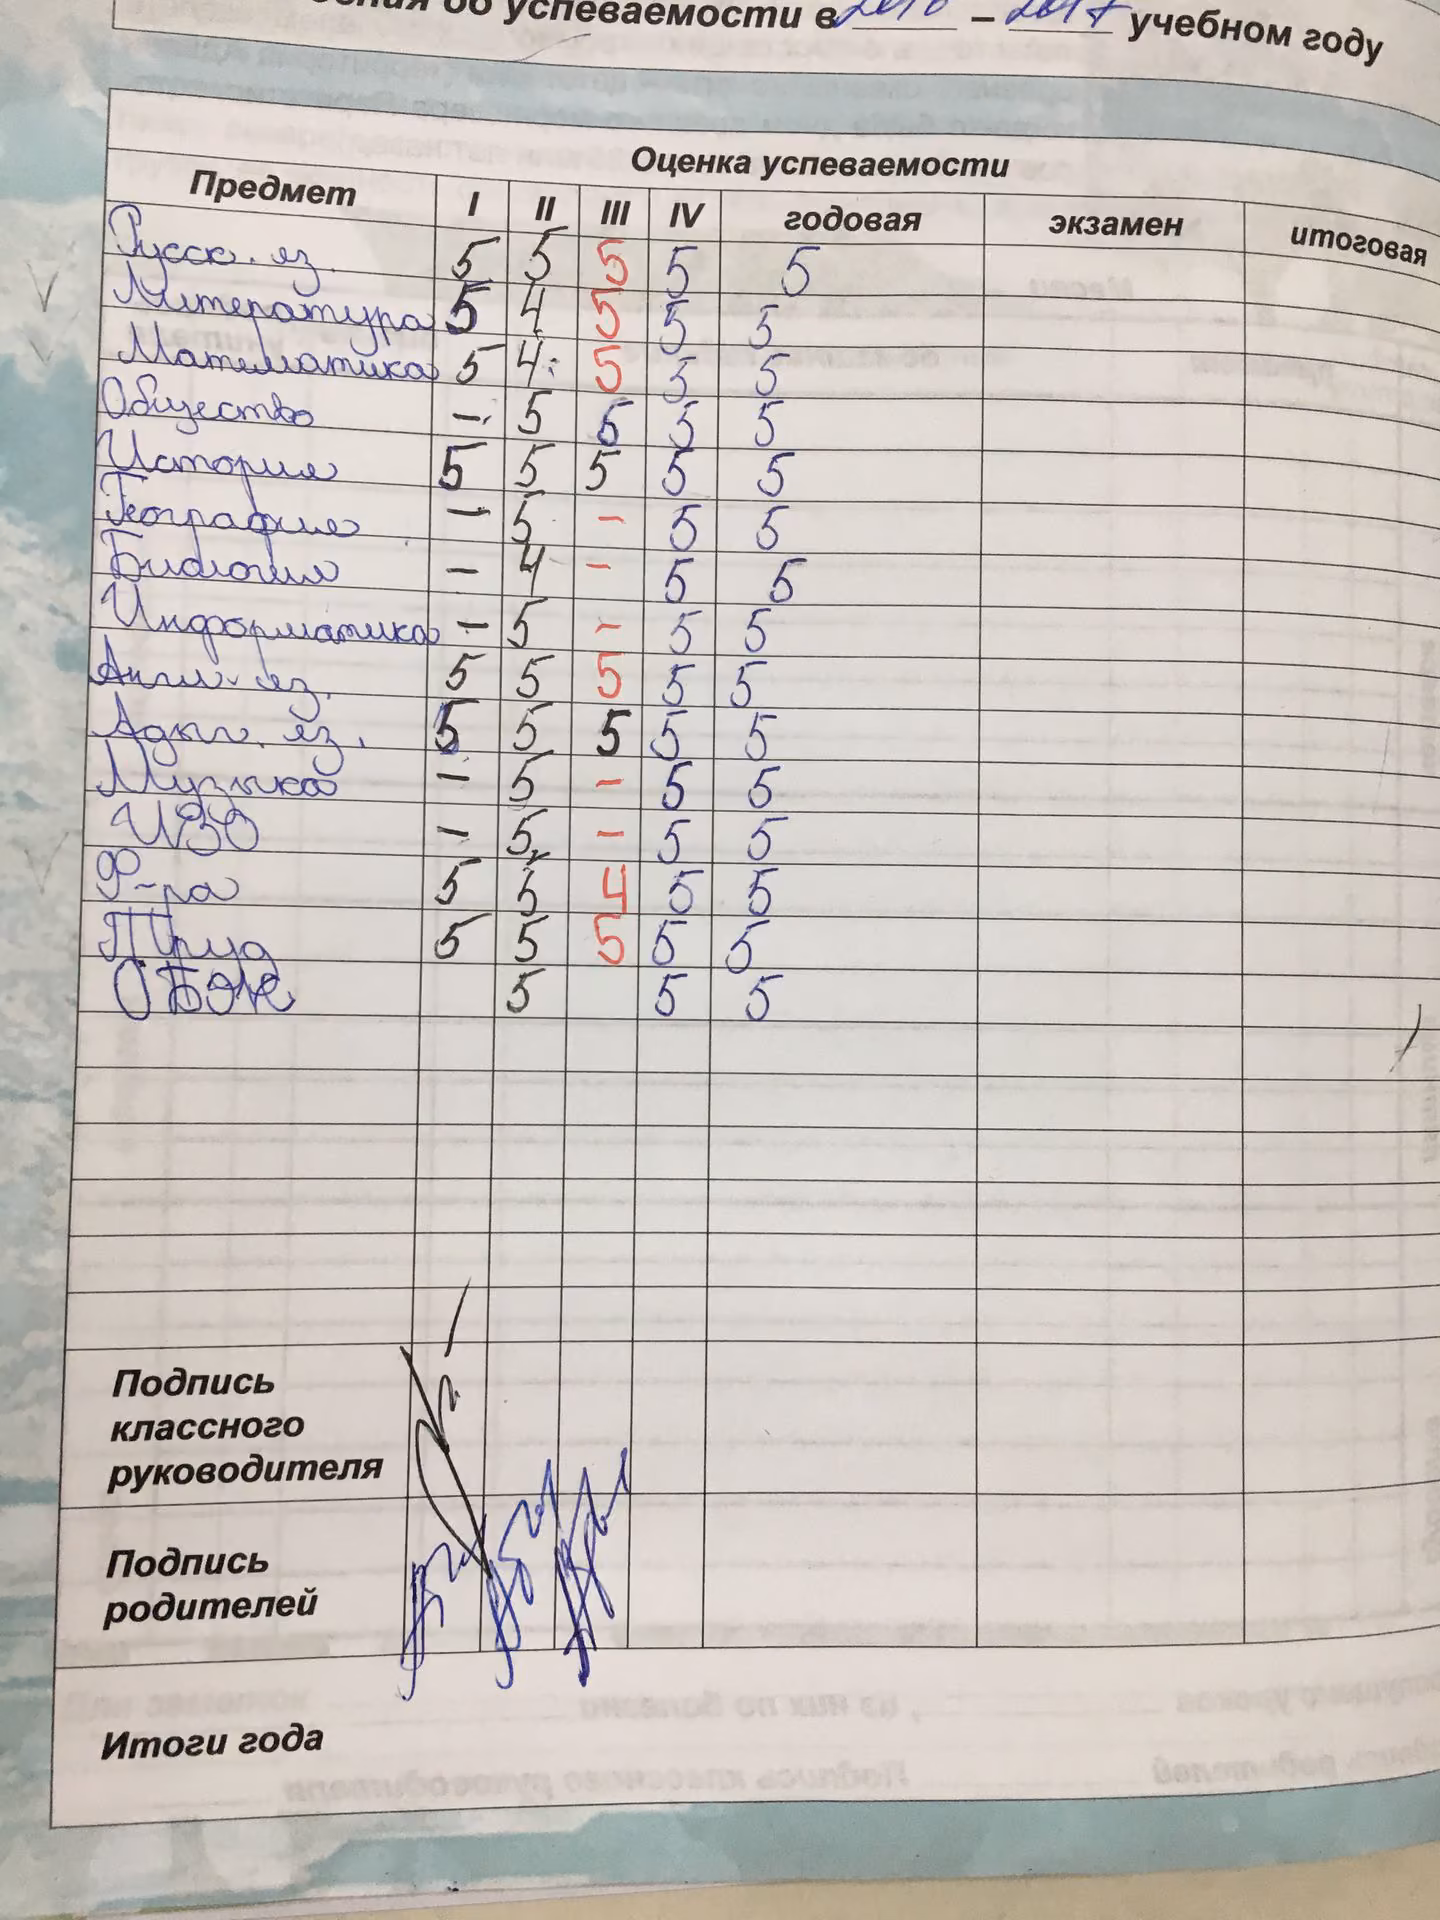 об успеваемости в 2016 – 2017 учебном году
Предмет Оценка успеваемости
I II III IV годовая экзамен итоговая
Русск. яз. 5 5 5 5 5
Литература 5 4 5 5 5
Математика 5 4 5 5 5
Общество – 5 5 5 5
История 5 5 5 5 5
География – 5 – 5 5
Биология – 4 – 5 5
Информатика – 5 – 5 5
Англ. яз. 5 5 5 5 5
Адыг. яз. 5 5 5 5 5
Музыка – 5 – 5 5
ИЗО – 5 – 5 5
Ф-ра 5 5 4 5 5
Труд 5 5 5 5 5
ОБЖ 5 5 5
Подпись
классного
руководителя
Подпись
родителей
Итоги года